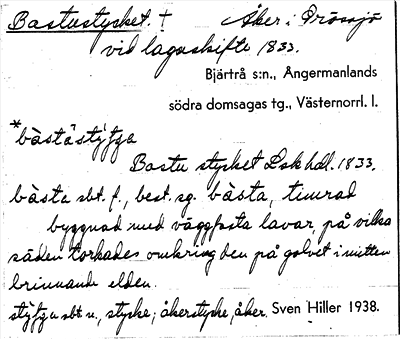 Bastustycket. † Åker i Prässjö
vid lagaskifte 1833.
Bjärtrå s:n., Ångermanlands
södra domsagas tg., Västernorrl. l.
*bàstästýtga
Bastu stycket Lsk hdl. 1833.
bàsta sbt. f., best. sg. bàsta, timrad
byggnad med väggfasta lavar, på vilka
säden torkades omkring den på golvet i mitten
brinnande elden.
stýtga sbt. n., stycke; åkerstycke, åker. Sven Hiller 1938.